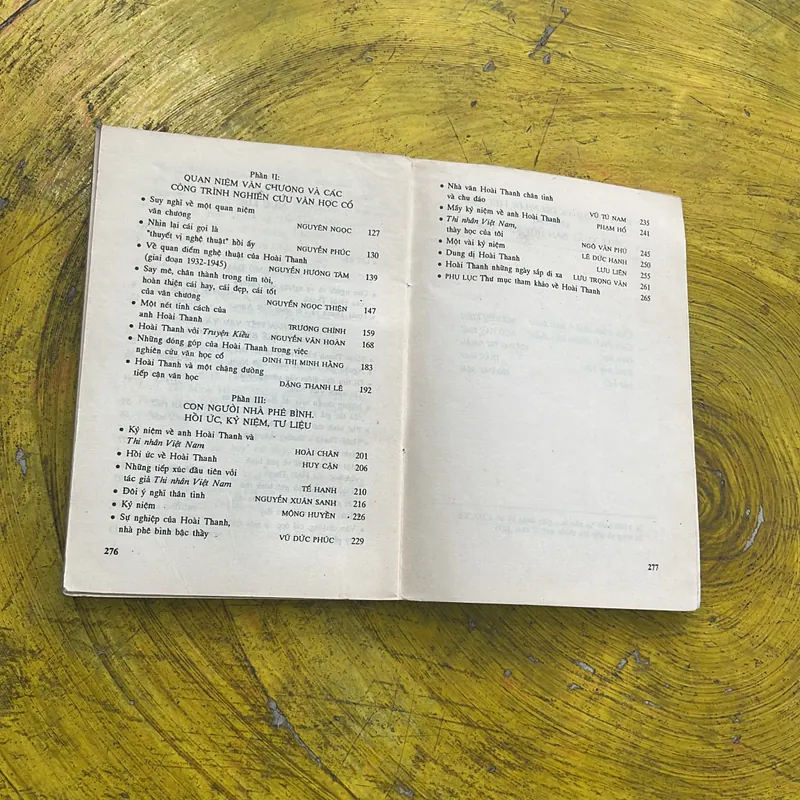 Phần II:
QUAN NIỆM VĂN CHƯƠNG VÀ CÁC
CÔNG TRÌNH NGHIÊN CỨU VĂN HỌC CỔ
• Suy nghĩ về một quan niệm
văn chương NGUYÊN NGỌC 127
• Nhìn lại cái gọi là
"thuyết vị nghệ thuật" hồi ấy NGUYỄN PHÚC 130
• Về quan điểm nghệ thuật của Hoài Thanh
(giai đoạn 1932-1945) NGUYỄN HƯƠNG TÂM 139
• Say mê, chân thành trong tìm tòi,
hoàn thiện cái hay, cái đẹp, cái tốt
của văn chương NGUYỄN NGỌC THIỆN 147
• Một nét tính cách của
anh Hoài Thanh TRƯƠNG CHÍNH 159
• Hoài Thanh với Truyện Kiều NGUYỄN VĂN HOÀN 168
• Những đóng góp của Hoài Thanh trong việc
nghiên cứu văn học cổ ĐINH THỊ MINH HẰNG 183
• Hoài Thanh và một chặng đường
tiếp cận văn học ĐẶNG THANH LÊ 192
Phần III:
CON NGƯỜI NHÀ PHÊ BÌNH.
HỒI ỨC, KỶ NIỆM, TƯ LIỆU
• Kỷ niệm về anh Hoài Thanh và
Thi nhân Việt Nam HOÀI CHÂN 201
• Hồi ức về Hoài Thanh HUY CẬN 206
• Những tiếp xúc đầu tiên với
tác giả Thi nhân Việt Nam TẾ HANH 210
• Đôi ý nghĩ thân tình NGUYỄN XUÂN SANH 216
• Kỷ niệm MỘNG HUYỀN 226
• Sự nghiệp của Hoài Thanh,
nhà phê bình bậc thầy VŨ ĐỨC PHÚC 229
276
• Nhà văn Hoài Thanh chân tình
và chu đáo VŨ TÚ NAM 235
• Mấy kỷ niệm về anh Hoài Thanh PHẠM HỔ 241
• Thi nhân Việt Nam,
thầy học của tôi NGÔ VĂN PHÚ 245
• Một vài kỷ niệm LÊ ĐỨC HẠNH 250
• Dung dị Hoài Thanh LƯU LIÊN 255
• Hoài Thanh những ngày sắp đi xa LƯU TRỌNG VĂN 261
• PHỤ LỤC Thư mục tham khảo về Hoài Thanh 265
277